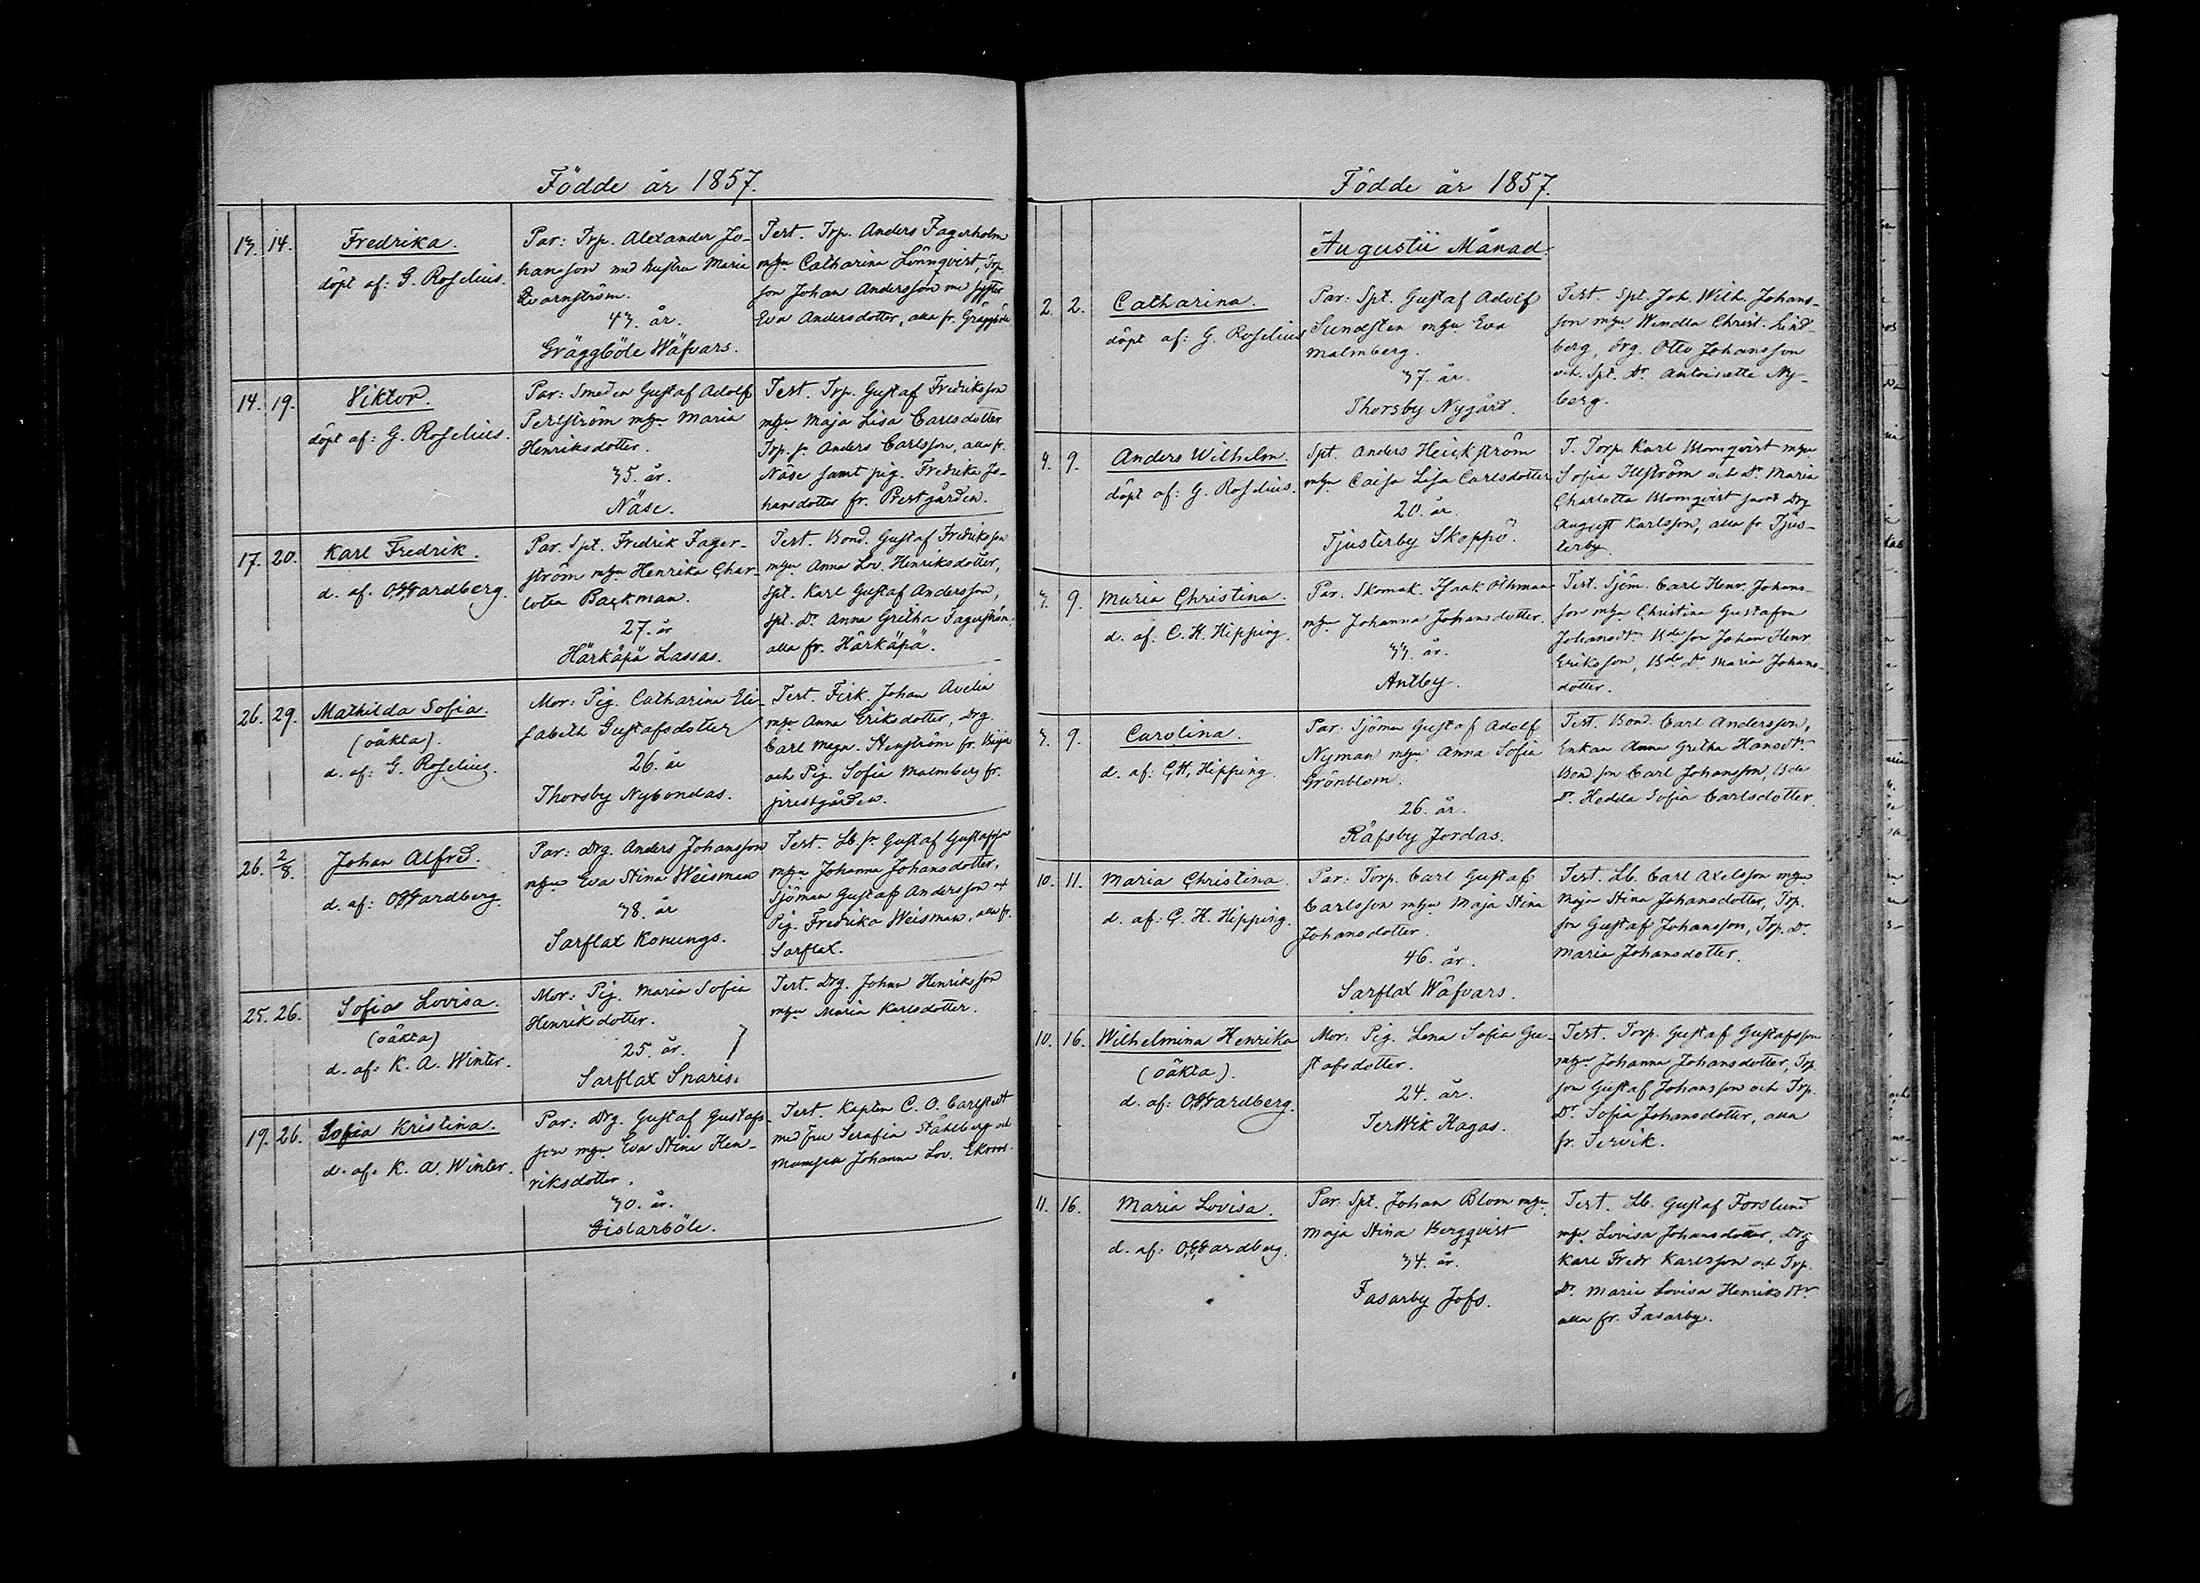 Födde år 1857.
13. 14. Fredrika.
döpt af: G. Roselius.
Par: Trp. Alexander Jo-
hansson med hustru Maria
Qvarnström.
43. år.
Gräggböle Wäfvars.
Tert. Trp. Anders Fagerholm
mhu Catharina Lönnqvist, Trp.
son Johan Andersson m syster
Eva Andersdotter, alla fr. Gräggböle
14. 19. Viktor.
döpt af: G. Roselius.
Par: Smeden Gustaf Adolf
Perlström mhu Maria
Henriksdotter.
35. år.
Näse.
Tert. Trp. Gustaf Fredriksson
mhu Maja Lisa Carlsdotter
Trp. sn Anders Carlsson, alla fr.
Näse samt pig. Fredrika Jo-
hansdotter fr. Prestgården.
17. 20. Karl Fredrik.
d. af: O. Wardberg.
Par. Spt. Fredrik Fager-
ström mhu Henrika Char-
lotta Backman.
27. år
Härkäpä Lassas.
Tert. Bond. Gustaf Fredriksson
mhu Anna Lov. Henriksdotter,
Spt. Karl Gustaf Andersson,
Spt. Dr Anna Gretha Fagerström,
alla fr. Härkäpä.
26. 29. Mathilda Sofia.
(oäkta).
d. af: G. Roselius.
Mor: Pig. Catharina Eli-
sabeth Gustafsdotter
26. år
Thorsby Nybondas.
Tert. Fisk. Johan Avelin
mhu Anna Eriksdotter, Drg.
Carl Magn. Stenström fr.
och Pig. Sofia Malmberg fr.
prestgården.
26. 2/8. Johan Alfred.
d. af: O. Wardberg.
Par: Drg. Anders Johansson
mhu Eva Stina Weisman
38. år
Sarflax Konungs.
Tert. Lb. sn Gustaf Gustafsson
mhu Johanna Johansdotter,
Sjöman Gustaf Andersson o
Pig. Fredrika Weisman, alla fr.
Sarflax.
25. 26. Sofia Lovisa.
(oäkta)
d. af: K. A. Winter.
Mor: Pig. Maria Sofia
Henriksdotter.
25. år.
Sarflax Snaris.
Tert. Drg. Johan Henriksson
mhu Maria Karlsdotter.
19. 26. Sofia Kristina.
d. af. K. A. Winter.
Par: Drg. Gustaf Gustafs-
son mhu Eva Stina Hen-
riksdotter.
30. år.
Gislarböle.
Tert. Kapten C. O. Carlstedt
med fru Serafia Stålberg och
Mamsell Johanna Lov. Ekroos.
Födde år 1857.
Augustii Månad.
2. 2. Catharina.
döpt af: G. Roselius
Par: Spt. Gustaf Adolf
Sundsten mhu Eva
Malmberg.
37. år.
Thorsby Nygård.
Tert. Spt. Joh. Wilh. Johans-
son mhu Wendla Christ. Lind-
berg, Drg. Otto Johansson
och Spt. Dr Antoinette Ny-
berg.
4. 9. Anders Wilhelm.
döpt af: G. Roselius.
Spt. Anders Heickström
mhu Caisa Lisa Carlsdotter
20. år.
Tjusterby Skoppö.
T. Torp. Karl Blomqvist mhu
Sofia Illström och Dr Maria
Charlotta Blomqvist samt Drg
August Karlsson, alla fr. Tjus-
terby.
3. 9. Maria Christina.
d. af. C. H. Hipping.
Par. Skomak. Isaak Othman
mhu Johanna Johansdotter.
33. år.
Antby.
Tert. Sjöm. Carl Henr. Johans-
son mhu Christina Gustafva
Johansdtr Bde son Johan Henr.
Eriksson, Bde Dr Maria Johans-
dotter.
3. 9. Carolina.
d. af: C. H. Hipping.
Par. Sjöman Gustaf Adolf
Nyman mhu Anna Sofia
Grönblom.
26. år.
Räfsby Jordas.
Tert. Bond. Carl Andersson,
Enkan Anna Gretha Hansdtr
Bond. son Carl Johansson, Bde
Dr Hedda Sofia Carlsdotter.
10. 11. Maria Christina.
d. af: C. H. Hipping.
Par: Torp. Carl Gustaf
Carlsson mhu Maja Stina
Johansdotter.
46. år.
Sarflax Wäfvars.
Tert. Lb. Carl Axelsson mhu
Maja Stina Johansdotter, Trp.
son Gustaf Johansson, Trp. Dr
Maria Johansdotter.
10. 16. Wilhelmina Henrika
(oäkta).
d. af: O. Wardberg.
Mor: Pig. Lena Sofia Gu-
stafsdotter.
24. år.
Terwik Hagas.
Tert. Torp. Gustaf Gustafsson
mhu Johanna Johansdotter, Trp.
son Gustaf Johansson och Trp.
Dr Sofia Johansdotter, alla
fr. Tervik.
11. 16. Maria Lovisa.
d. af: O. Wardberg.
Par. Spt. Johan Blom mhu
Maja Stina Bergqvist
34. år.
Fasarby Jofs.
Tert. Lb. Gustaf Forslund
mhu Lovisa Johansdotter, Drg
Karl Fredr. Karlsson och Trp.
Dr Maria Lovisa Henriksdtr
alla fr. Fasarby.